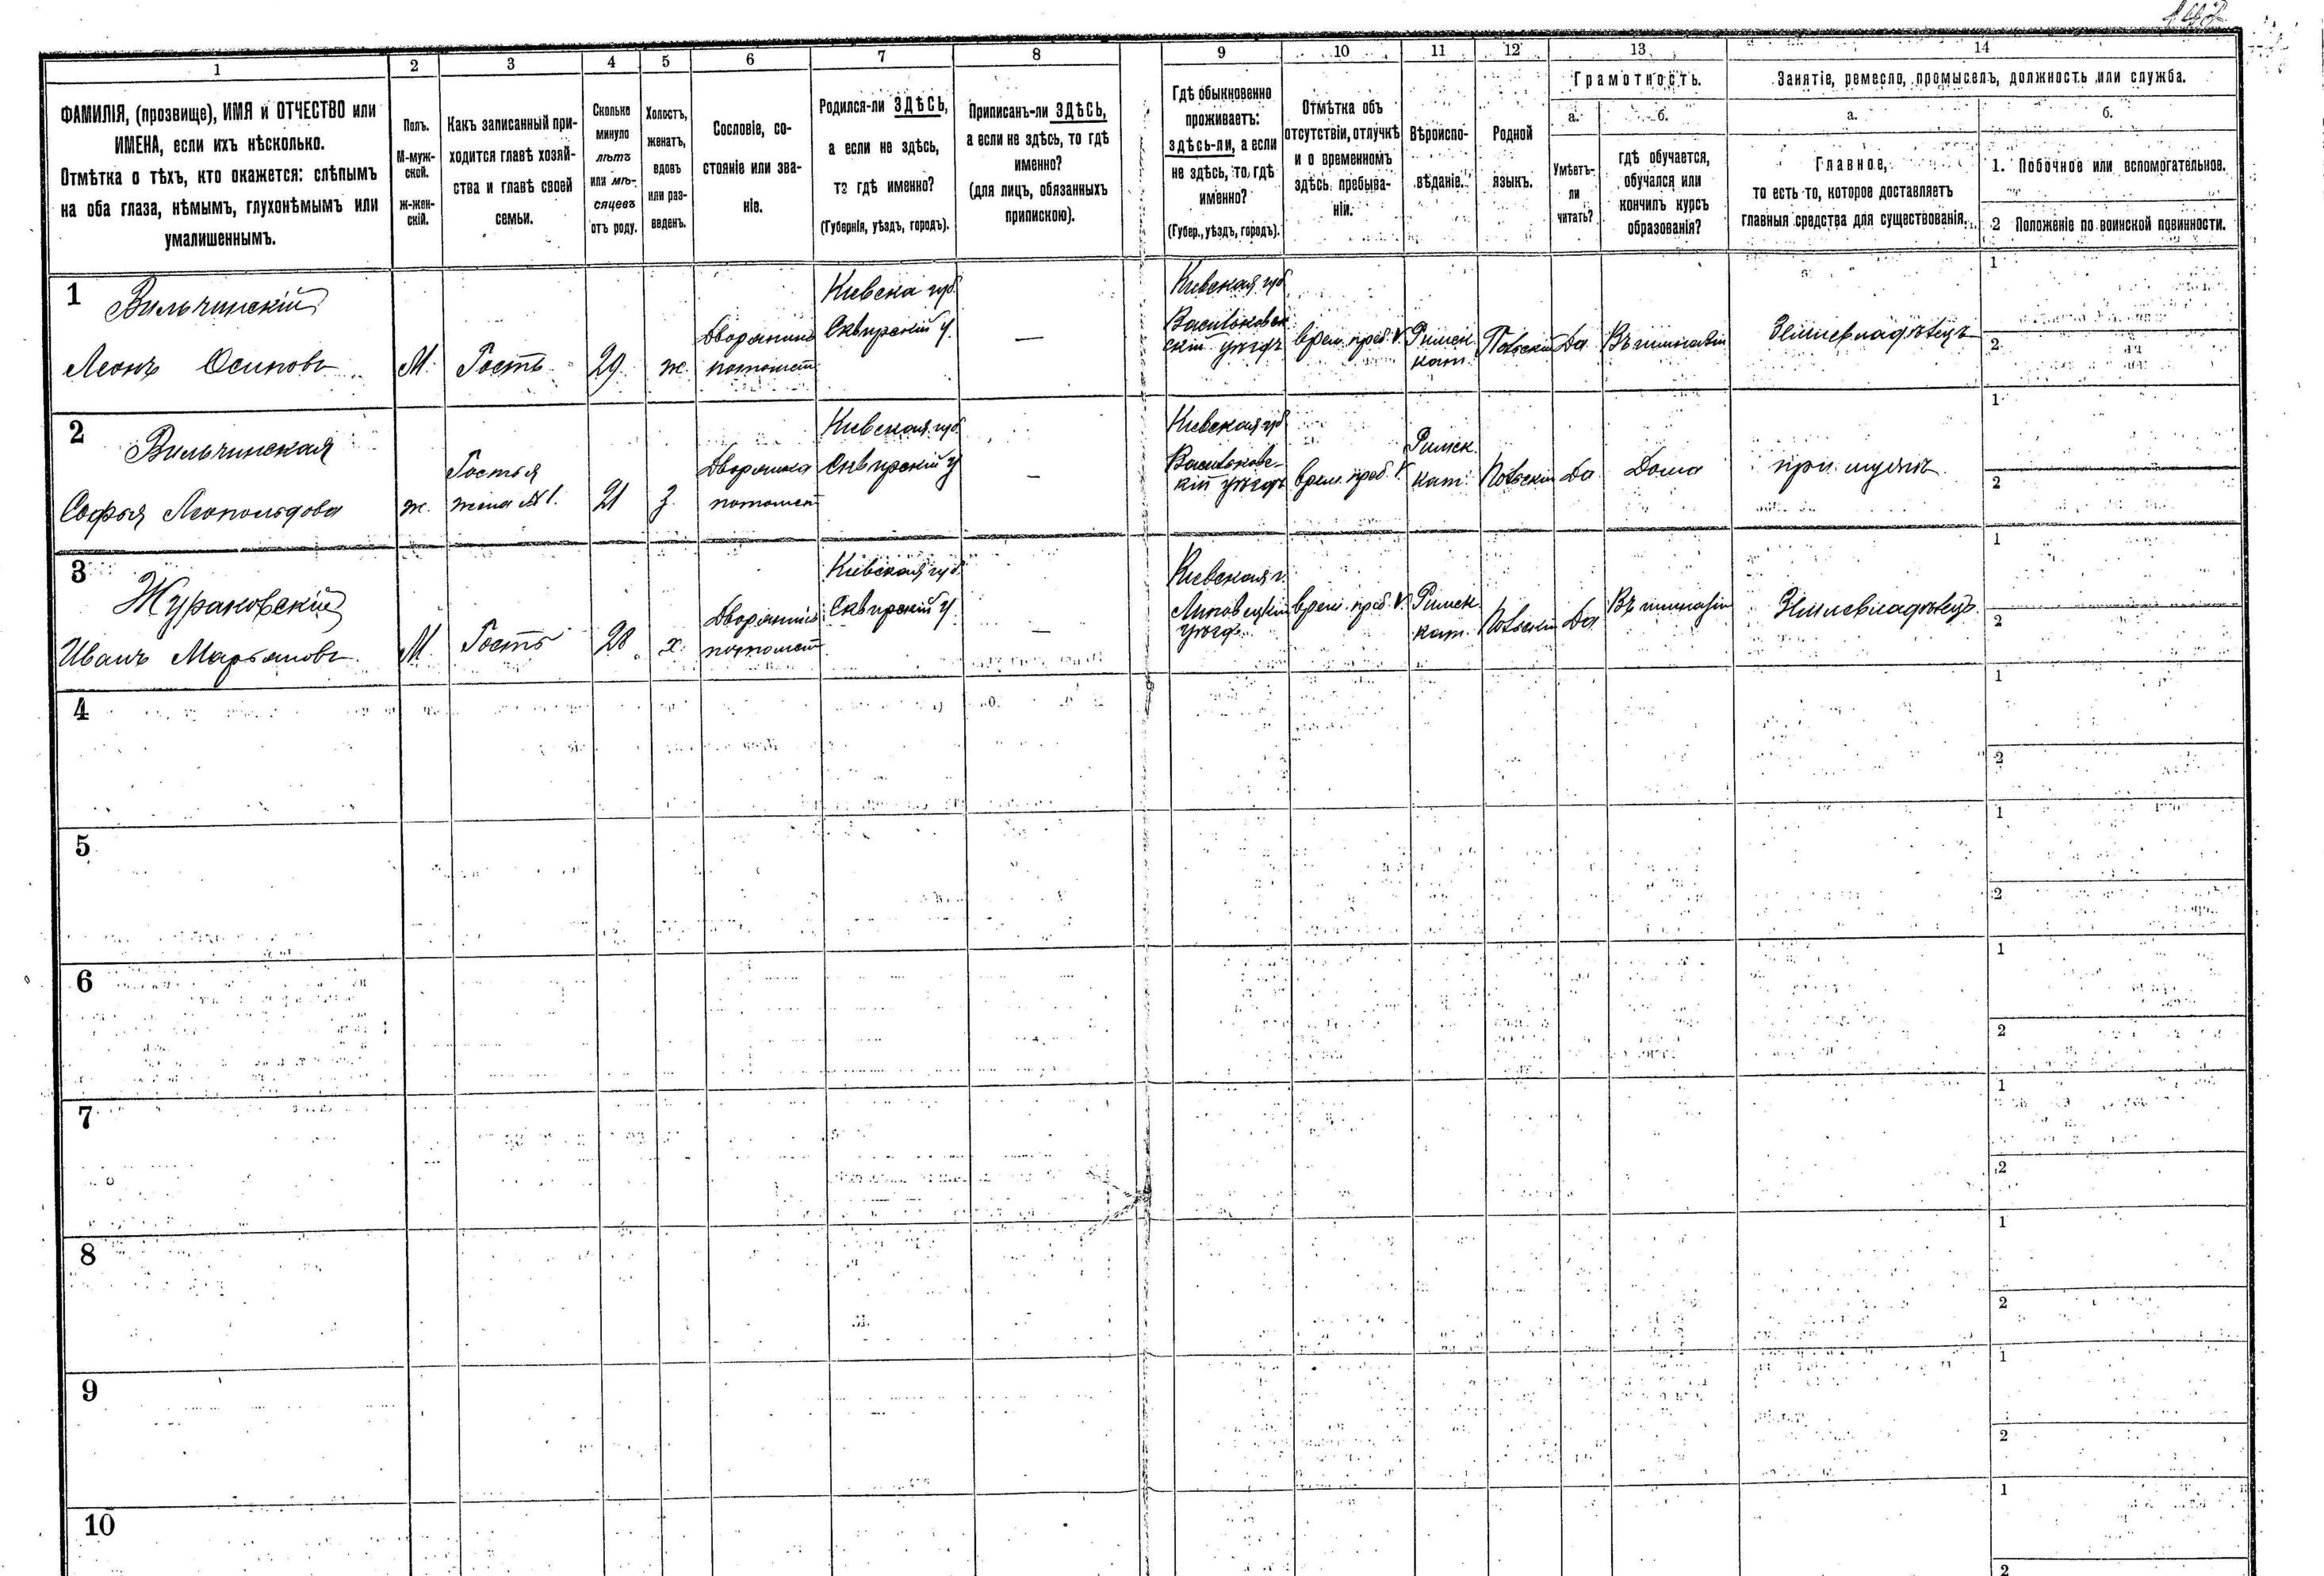 1 2 3 4 5 6 7 8 9 10 11 12 13 14
ФАМИЛІЯ, (прозвище), ИМЯ и ОТЧЕСТВО или
ИМЕНА, если ихъ нѣсколько.
Отмѣтка о тѣхъ, кто окажется: слѣпымъ
на оба глаза, нѣмымъ, глухонѣмымъ или
умалишеннымъ.
Полъ.
М-муж-
ской.
ж-жен-
скій.
Какъ записанный при-
ходится главѣ хозяй-
ства и главѣ своей
семьи.
Сколько
минуло
лѣтъ
или мѣ-
сяцевъ
отъ роду.
Холостъ,
женатъ,
вдовъ
или раз-
веденъ.
Сословіе, со-
стояніе или зва-
ніе.
Родился-ли ЗДѢСЬ,
а если не здѣсь,
то гдѣ именно?
(Губернія, уѣздъ, городъ).
Приписанъ-ли ЗДѢСЬ,
а если не здѣсь, то гдѣ
именно?
(для лицъ, обязанныхъ
припискою).
Гдѣ обыкновенно
проживаетъ:
здѣсь-ли, а если
не здѣсь, то гдѣ
именно?
(Губер., уѣздъ, городъ).
Отмѣтка объ
отсутствіи, отлучкѣ
и о временномъ
здѣсь пребыва-
ніи.
Вѣроиспо-
вѣданіе.
Родной
языкъ.
Грамотность.
а.
Умѣетъ-
ли
читать?
б.
гдѣ обучается,
обучался или
кончилъ курсъ
образованія?
Занятіе, ремесло, промыселъ, должность или служба.
а.
Главное,
то есть то, которое доставляетъ
главныя средства для существованія.
б.
1. Побочное или вспомогательное.
2 Положеніе по воинской повинности.
1
Вильчинскій
Леонъ Осиповъ
М.
Гость
29
ж.
Дворянинъ
потомст
Кіевска губ.
Сквирскій у.
—
Кіевская губ
Васильковск
скій уѣздъ
врем. преб. V.
Римск.
кат.
Польскій
Да
Въ гимназіи
Землевладѣлецъ
1
2
2
Вильчинская
Софья Леопольдова
ж.
Гостья
жена №1.
21
з.
Дворянка
потомст
Кіевская губ.
Сквирскій у
—
Кіевская губ
Васильковс-
кій уѣздъ
врем. преб. V.
Римск.
кат.
Польскій
Да
Дома
при мужѣ
1
2
3
Жураковскій
Иванъ Марьяновъ
М
Гость
28
х.
Дворянинъ
потомст
Кіевская губ.
Сквирскій у.
—
Кіевская г.
Липовецкій
уѣздъ
врем. преб. V.
Римск.
кат.
Польскій
Да
Въ гимназіи
Землевладѣлецъ.
1
2
4
1
2
5
1
2
6
1
2
7
1
2
8
1
2
9
1
2
10
1
2